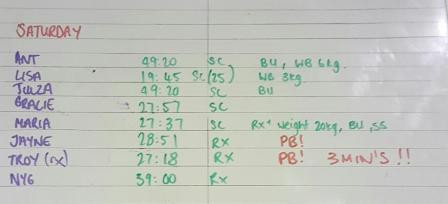 SATURDAY
ANT 49:20 SC BU, WB 6kg.
LISA 19:45 SC(25) WB 3kg.
JULZA 49:20 SC BU
GRACIE 27:57 SC
MARIA 27:37 SC RX+ weight 20kg, BU, SS
JAYNE 28:51 RX PB!
TROY (rx) 27:18 RX PB! 3MIN'S !!
39:00 RX